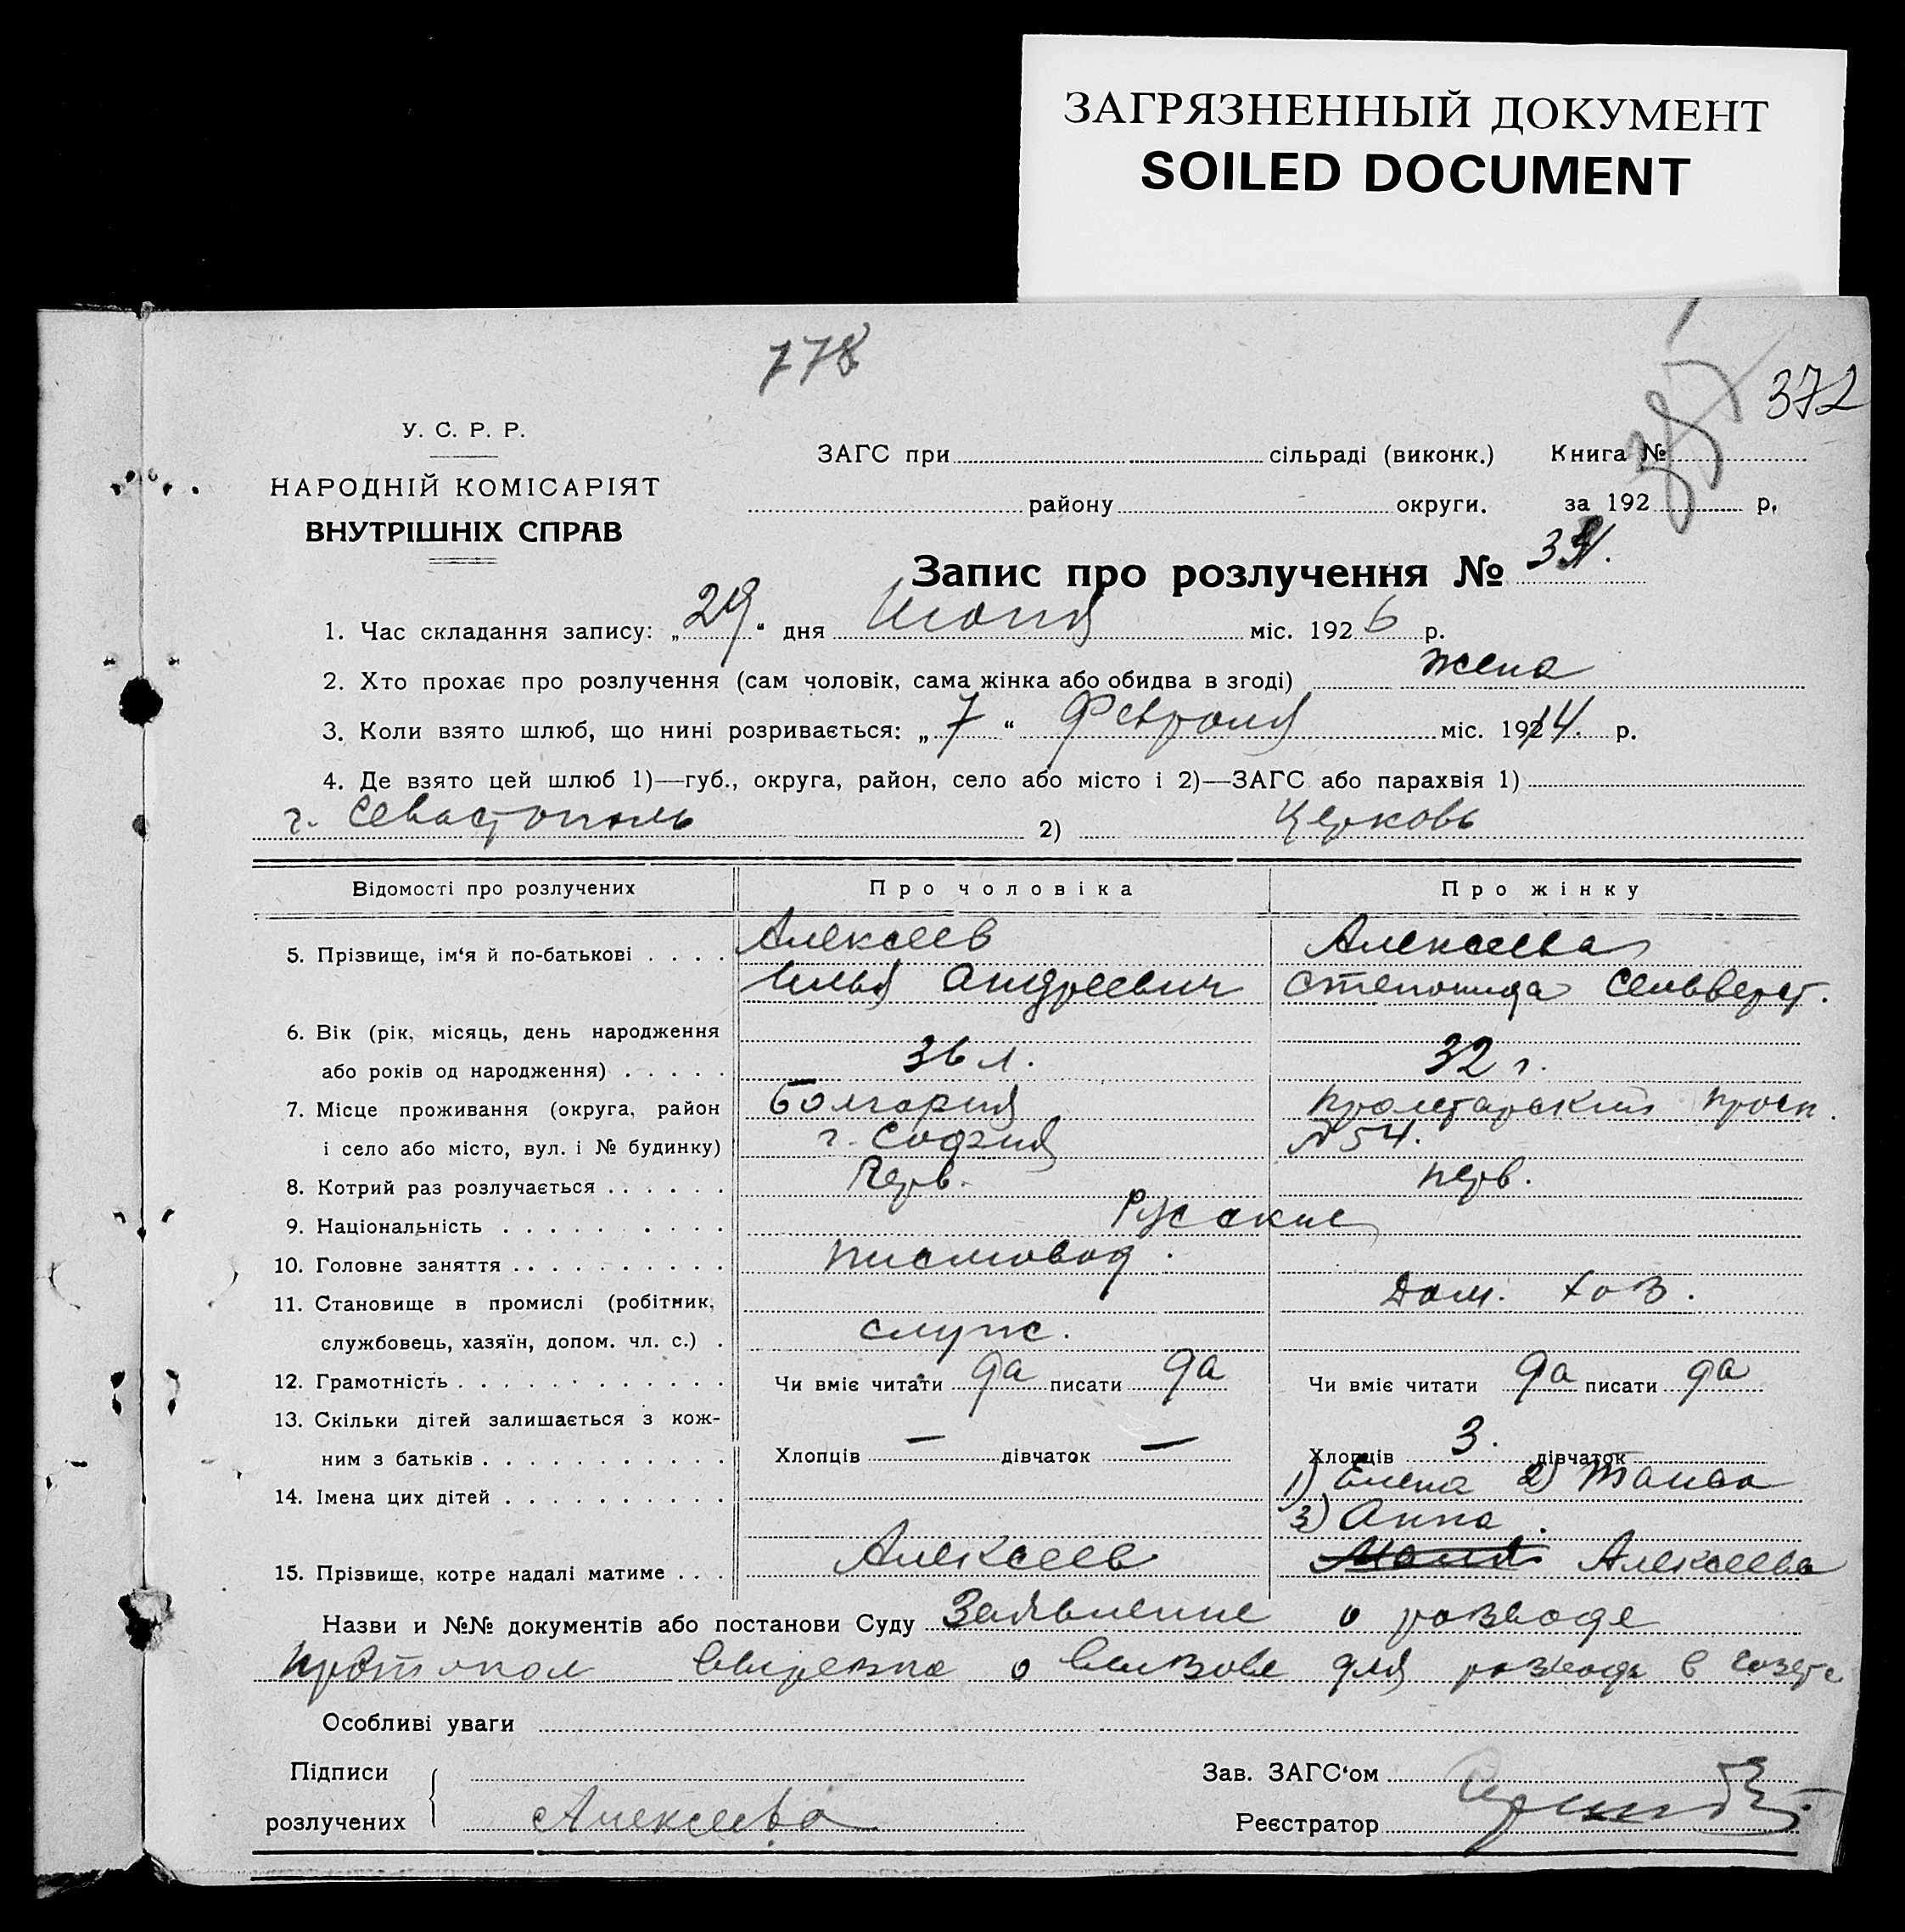 ЗАГРЯЗНЕННЫЙ ДОКУМЕНТ
SOILED DOCUMENT
778
372
У. С. Р. Р.
НАРОДНІЙ КОМІСАРІЯТ
ВНУТРІШНІХ СПРАВ
ЗАГС при сільраді (виконк.) Книга №
району округи. за 192 р.
Запис про розлучення №
1. Час складання запису: „29“ дня міс. 1926 р.
2. Хто прохає про розлучення (сам чоловік, сама жінка або обидва в згоді) жена
3. Коли взято шлюб, що нині розривається: „7“ Февраля міс. 1914. р.
4. Де взято цей шлюб 1)—губ., округа, район, село або місто і 2)—ЗАГС або парахвія 1)
г. Севастополь 2) Церковь
Відомості про розлучених Про чоловіка Про жінку
5. Прізвище, ім‘я й по-батькові . . . . Алексеев Алексеева
Илья Андреевич Степанида Сельверст.
6. Вік (рік, місяць, день народження
або років од народження) . . . . . 36 л. 32 г.
7. Місце проживання (округа, район Болгария Пролетарский просп.
і село або місто, вул. і № будинку) г. София №54.
8. Котрий раз розлучається . . . . . . Перв. перв.
9. Національність . . . . . . . . . . Русские
10. Головне заняття . . . . . . . . . . писмовод.
11. Становище в промислі (робітник, Дом. хоз.
службовець, хазяїн, допом. чл. с.) . служ.
12. Грамотність . . . . . . . . . . . . Чи вміє читати да писати да Чи вміє читати да писати да
13. Скільки дітей залишається з кож-
ним з батьків . . . . . . . . . . . Хлопців — дівчаток — Хлопців 3. дівчаток
14. Імена цих дітей . . . . . . . . . . 1) Елена 2) Таиса
3) Анна.
15. Прізвище, котре надалі матиме . . . Алексеев Алексеева
Назви и №№ документів або постанови Суду Заявление о разводе
протокол вырезка о вызове для развода в газете
Особливі уваги
Підписи Зав. ЗАГС‘ом
розлучених Алексеева Реєстратор